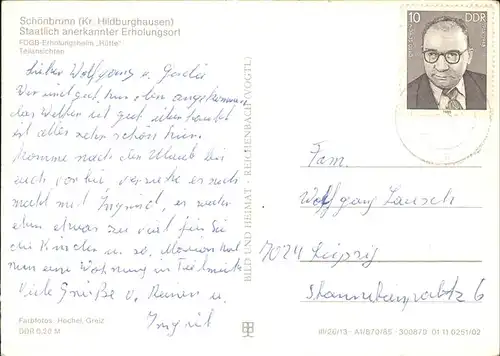 Schönbrunn (Kr. Hildburghausen)
Staatlich anerkannter Erholungsort
FDGB-Erholungsheim „Hütte"
Teilansichten
Lieber Wolfgang u. Gerda
Wir sind gut hier oben angekommen
das Wetter ist gut, überhaupt
ist alles sehr schön hier.
Komme nach dem Urlaub bei
euch vorbei, versuche es noch
mal mit Ingrid, es
etwas zu viel für Sie
die Kinder u. so, Marion hat
nun eine Wohnung in
Viele Grüße v. Heiner u.
Ingrid
Farbfotos: Hochel, Greiz
DDR 0,20 M
BILD UND HEIMAT · REICHENBACH (VOGTL)
10 DDR
1985
Fam.
Wolfgang
7024 Leipzig
6
III/26/13 · A1/B70/85 · 300870 01 11 0251/02